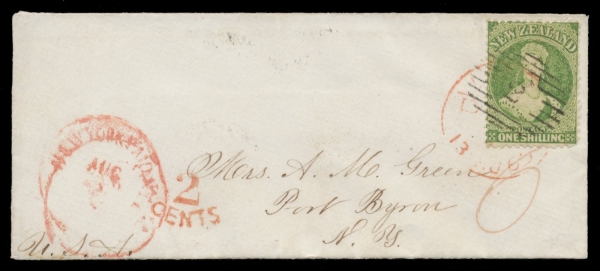 NEW ZEALAND
ONE SHILLING
13
NEW YORK PAID
AUG
2
CENTS
Mrs. A. M. Green
Port Byron
N. Y.
U. S. A.